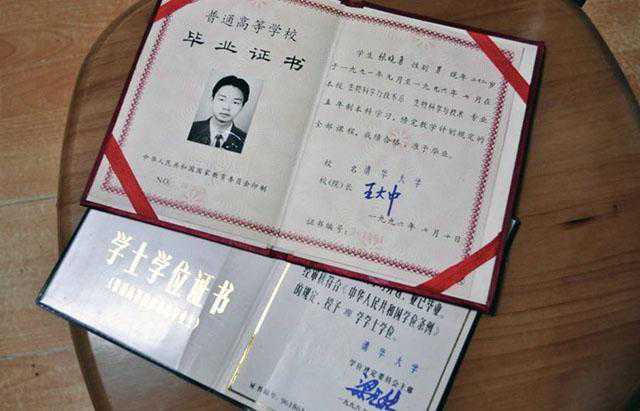 普通高等学校
毕业证书
中华人民共和国国家教育委员会印制
NO.
学生 张晓勇 性别 男 现年 二十四岁
于一九九一年九月至一九九六年七月在
本校 生物科学与技术系 生物科学与技术 专业
五年制本科学习，修完教学计划规定的
全部课程，成绩合格，准予毕业。
校名 清华大学
校(院)长 王大中
一九九六年七月十日
证书编号：
学士学位证书
经审核符合《中华人民共和国学位条例》
的规定，授予 理 学学士学位。
清华大学
学位评定委员会主席
证书编号：
一九九六年